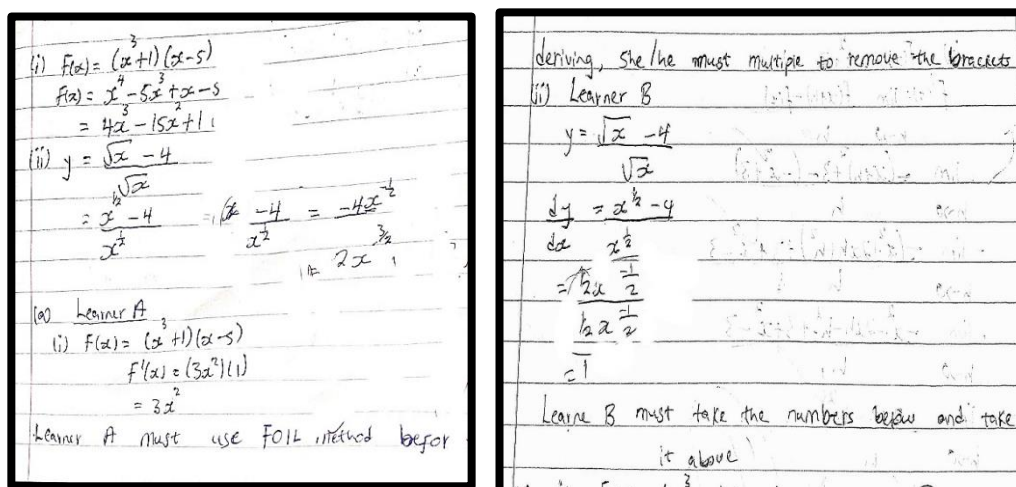 (i) F(x) = (x³+1)(x-5)
F(x) = x⁴ - 5x³ + x - 5
= 4x³ - 15x² + 1
(ii) y = √x - 4 / √x
= x^½ - 4 / x^½ = -4 / x^½ = -4x^-½
= 2x^3/2
(a) Learner A
(i) F(x) = (x³+1)(x-5)
F'(x) = (3x²)(1)
= 3x²
Learner A must use FOIL method befor
deriving, She/he must multiple to remove the brackets
(ii) Learner B
y = √x - 4 / √x
dy/dx = x^½ - 4 / x^½
= ½x^-½ / ½x^-½
= 1
Learne B must take the numbers below and take
it above